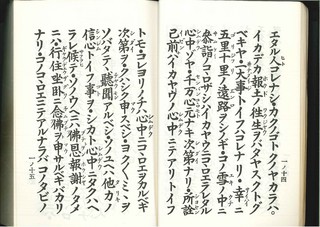 エタル人コレナシ、カクノゴトクノヤカラハ、
イカデカ報土ノ往生ヲバヤスクトグ
ベキヤ、一大事トイフハコレナリ、幸ニ
五里十里ノ遠路ヲシノギ、コノ雪ノ中ニ
參詣ノコヽロザシハ、イカヤウニコヽロエラレタル
心中ゾヤ、千万心元ナキ次第ナリ、所詮
已前ハイカヤウノ心中ニテアリトイフ
トモ、コレヨリノチハ心中ニコヽロエヲカルベキ
次第ヲ、クハシク申スベシ、ヨク〳〵ミヽヲ
ソバタテヽ聽聞アルベシ、ソノユヘハ他力ノ
信心トイフ事ヲ、シカト心中ニタクハヘ
ラレ候テ、ソノウヘニハ佛恩報謝ノタメ
ニハ、行住坐臥ニ念佛ヲ申サルベキバカリ
ナリ、コノコヽロエニテアルナラバ、コノタビノ
一ノ十四
一ノ十五